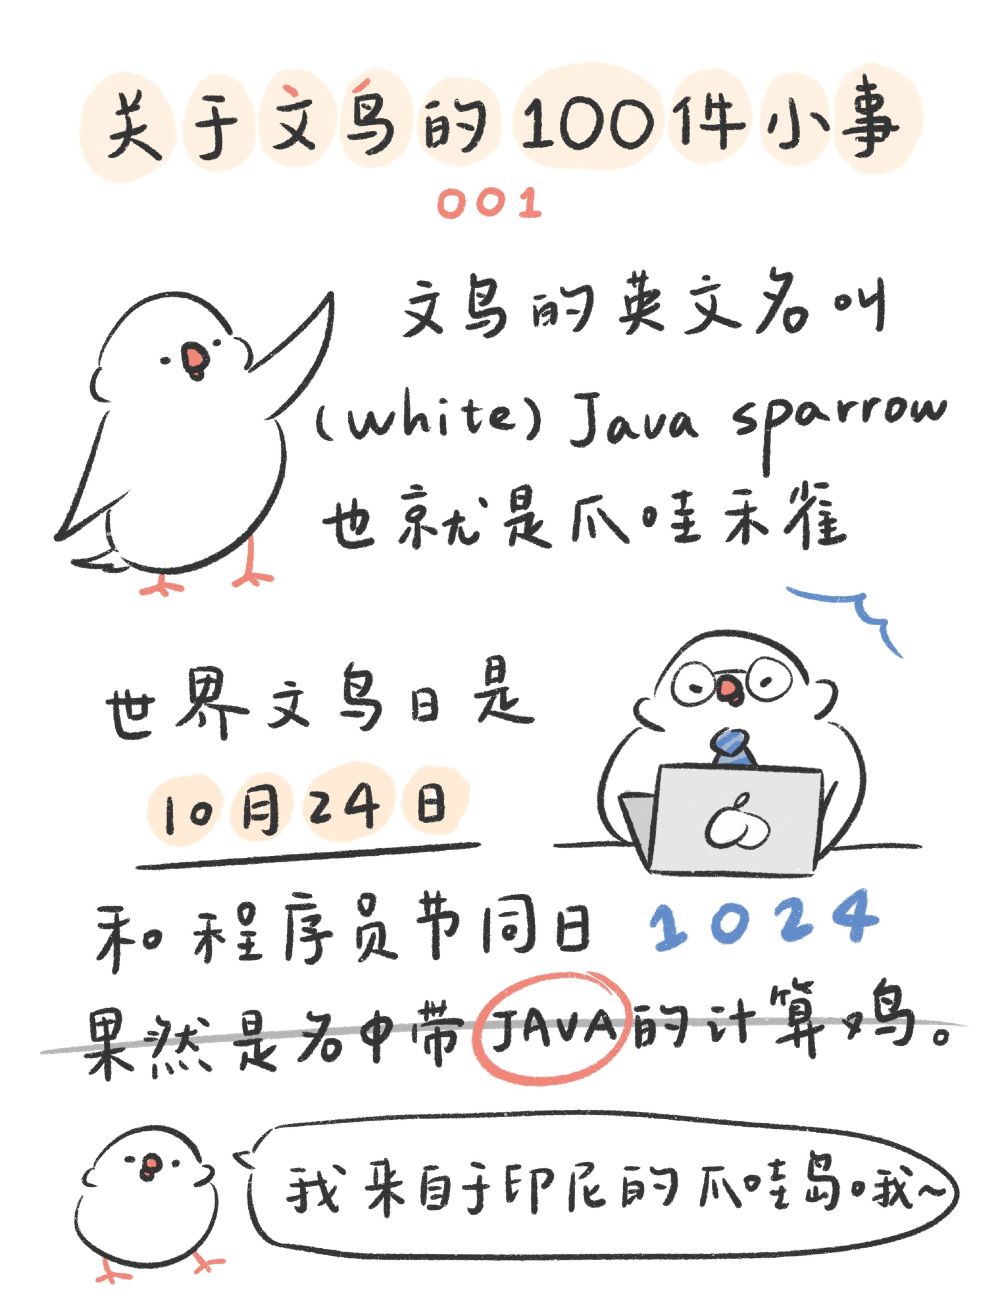 关于文鸟的100件小事
001
文鸟的英文名叫
(white) Java sparrow
也就是爪哇禾雀
世界文鸟日是
10月24日
和程序员节同日 1024
果然是名中带JAVA的计算鸡。
我来自于印尼的爪哇岛。哦~